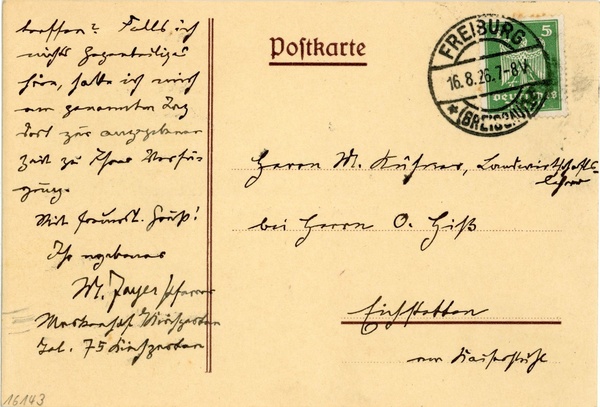 treffen? Falls ich
nichts Gegenteiliges
höre, halte ich mich
am genannten Tag
dort zur angegebenen
Zeit zu Ihrer Verfü-
gung.
Mit freundl. Gruß!
Ihr ergebener
M. Pfarrer
Kirchzarten
Tel. 75 Kirchzarten
16143
Postkarte
FREIBURG
16.8.26.7-8V
*(BREISGAU)
5
Deutsches
Herrn M. Landwirtschafts-
lehrer
bei Herrn O. Hiß
Eichstetten
am Kaiserstuhl